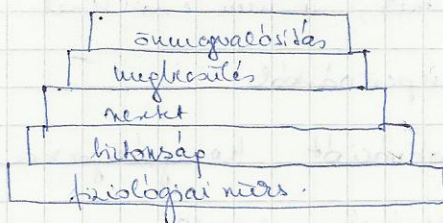 önmegvalósítás
megbecsülés
szeretet
biztonság
fiziológiai